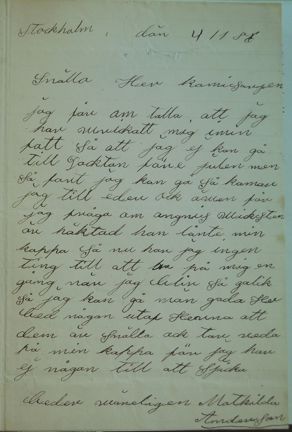 Stockholm, dän 4 11 88
Snälla Her kamisarjen
jag får om talla, att jag
har utvickatt mig min
fått så att jag ej kan gå
till före julen men
så fort jag kan gå så kamer
jag till eder och även får
jag fråga om
är häktad han lånte min
kappa så nu har jag ingen
ting till att på mig en
gång när jag blir så
så jag kan gå min goda Her
bed någan utaf Herarna att
dem är snälla ock tar reda
på min kappa får jag har
ej någan till att skicka
beder vänligen Mathilda
Andersson